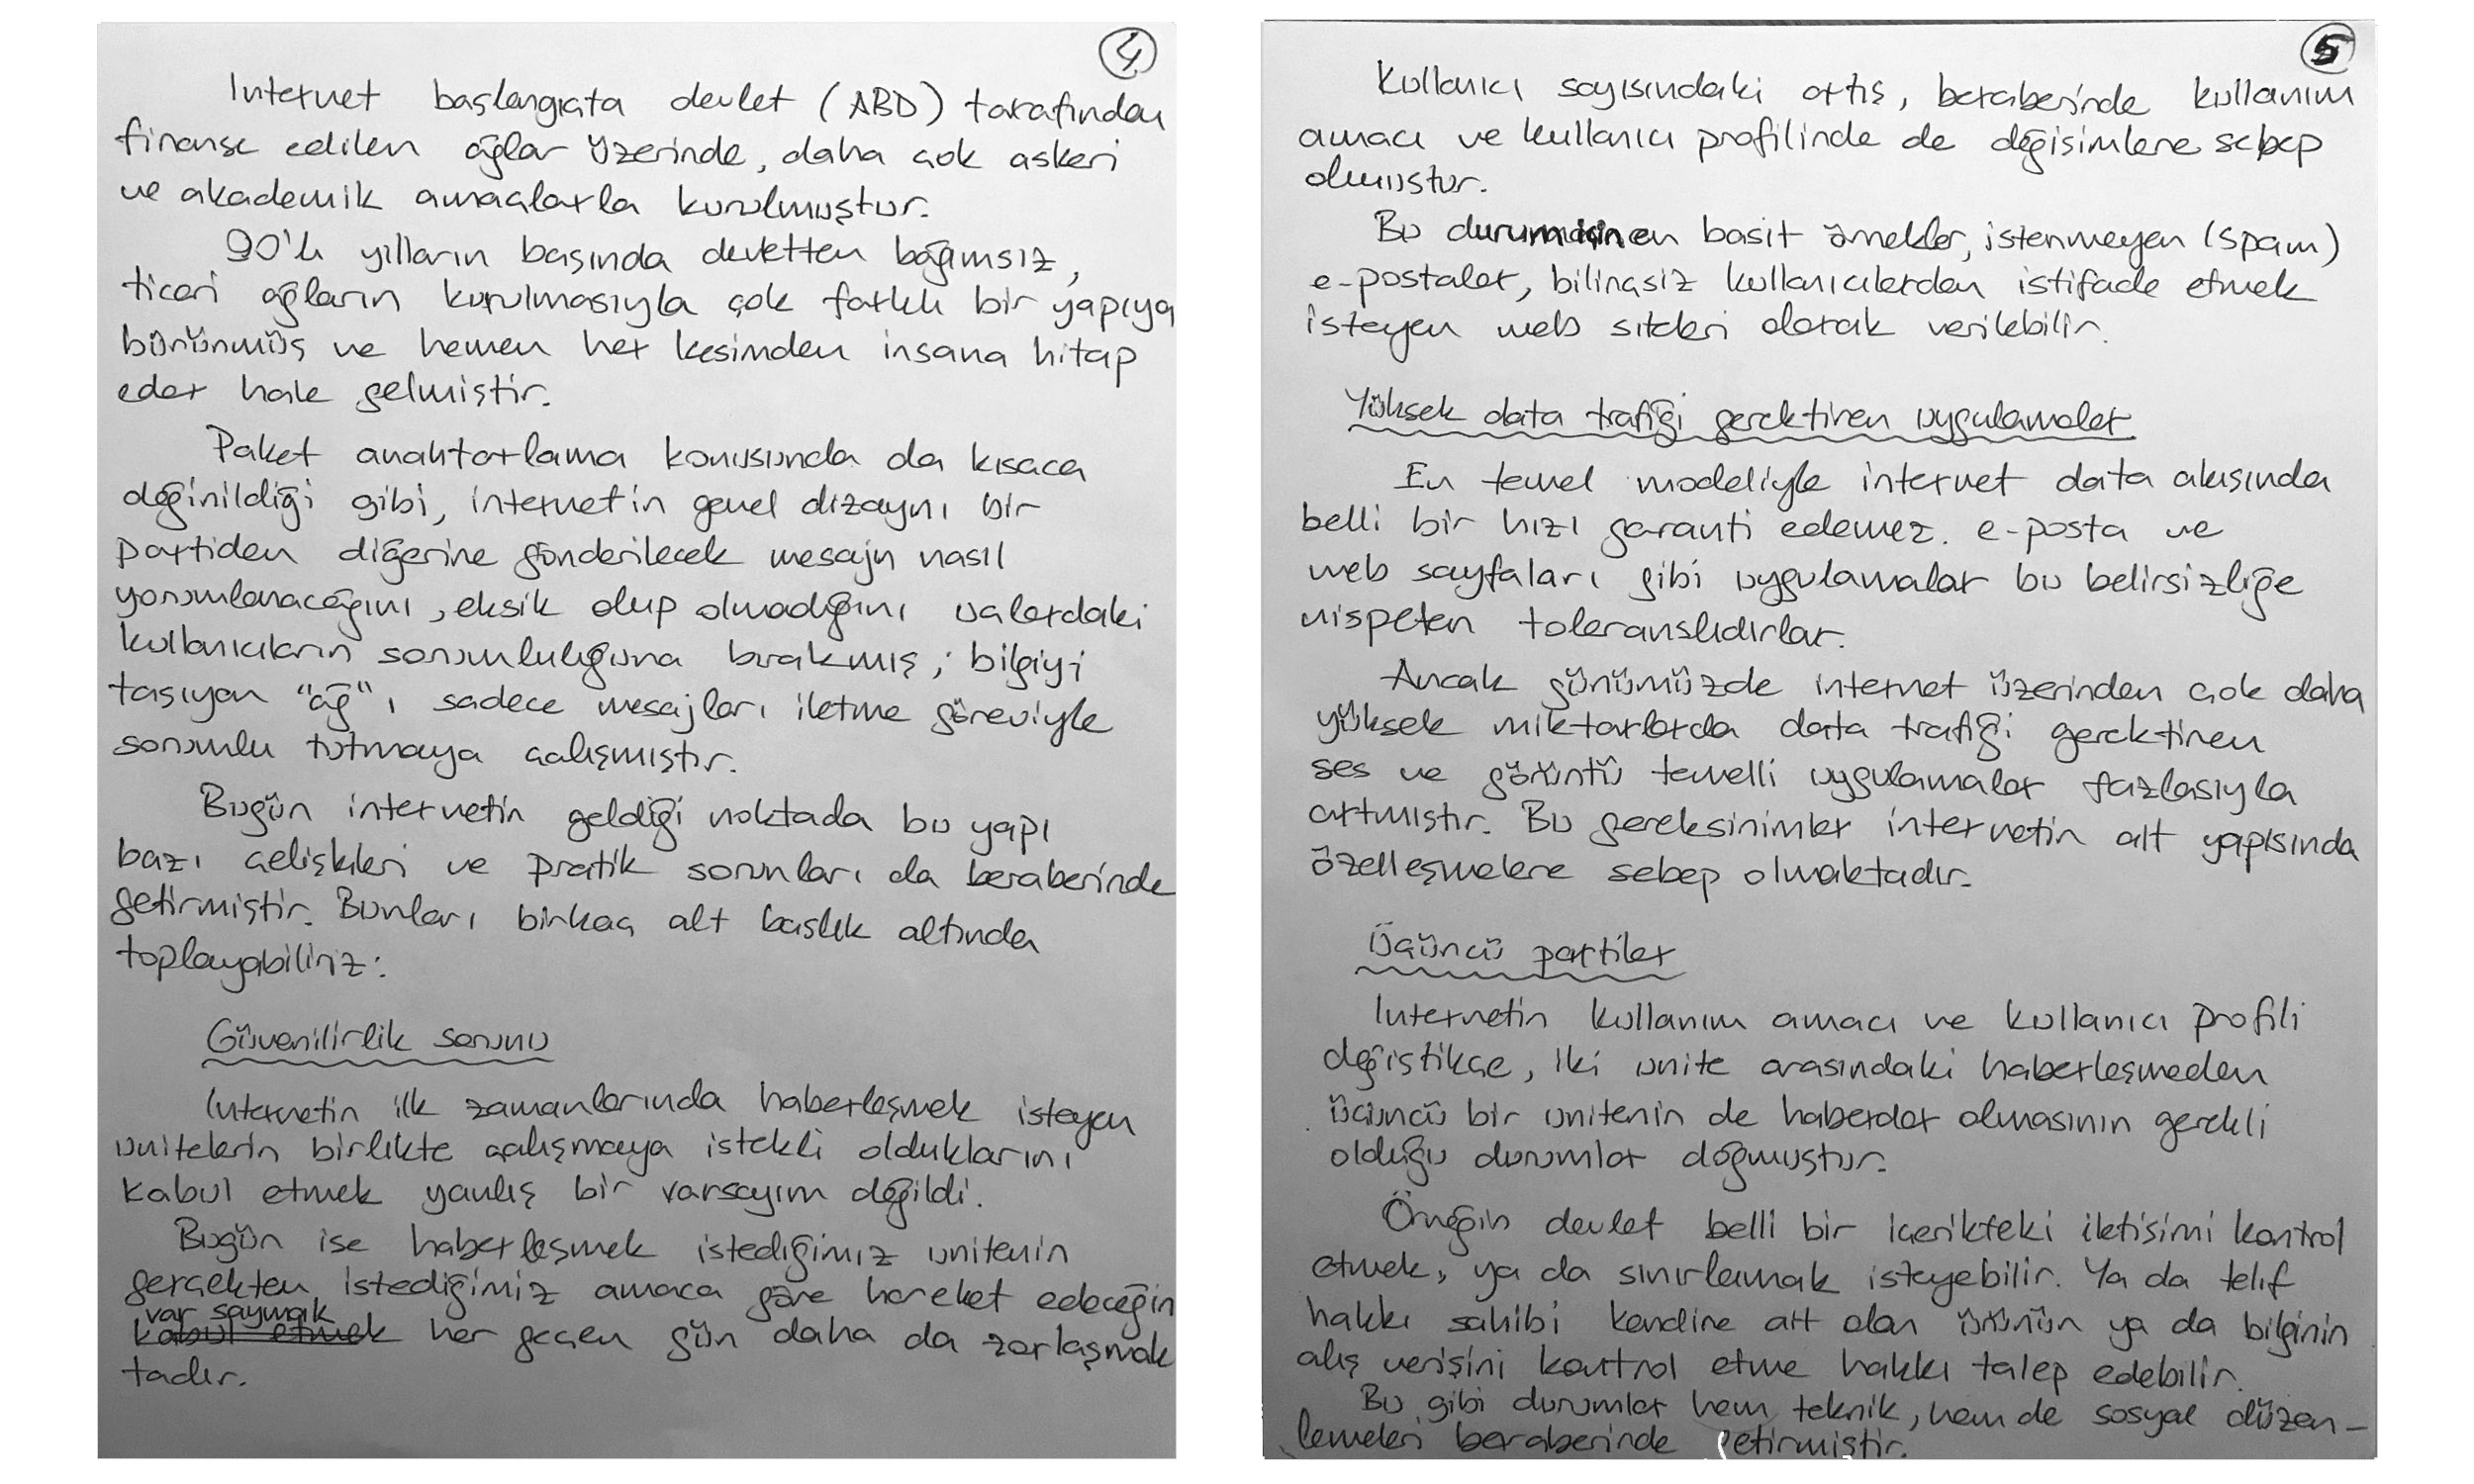 4
Internet başlangıçta devlet (ABD) tarafından
finanse edilen ağlar üzerinde, daha çok askeri
ve akademik amaçlarla kurulmuştur.
90'lı yılların başında devletten bağımsız,
ticari ağların kurulmasıyla çok farklı bir yapıya
bürünmüş ve hemen her kesimden insana hitap
eder hale gelmiştir.
Paket anahtarlama konusunda da kısaca
değinildiği gibi, internetin genel dizaynı bir
partiden diğerine gönderilecek mesajın nasıl
yorumlanacağını, eksik olup olmadığını uçlardaki
kullanıcıların sorumluluğuna bırakmış; bilgiyi
taşıyan "ağ"ı sadece mesajları iletme göreviyle
sorumlu tutmaya çalışmıştır.
Bugün internetin geldiği noktada bu yapı
bazı çelişkileri ve pratik sorunları da beraberinde
getirmiştir. Bunları birkaç alt başlık altında
toplayabiliriz:
Güvenilirlik sorunu
Internetin ilk zamanlarında haberleşmek isteyen
unitelerin birlikte çalışmaya istekli olduklarını
kabul etmek yanlış bir varsayım değildi.
Bugün ise haberleşmek istediğimiz unitenin
gerçekten istediğimiz amaca göre hareket edeceğin
var saymak
kabul etmek her geçen gün daha da zorlaşmak
tadır.
5
Kullanıcı sayısındaki artış, beraberinde kullanım
amacı ve kullanıcı profilinde de değişimlere sebep
olmuştur.
Bu durum için en basit örnekler, istenmeyen (spam)
e-postalar, bilinçsiz kullanıcılardan istifade etmek
isteyen web siteleri olarak verilebilir.
Yüksek data trafiği gerektiren uygulamalar
En temel modeliyle internet data akışında
belli bir hızı garanti edemez. e-posta ve
web sayfaları gibi uygulamalar bu belirsizliğe
nispeten toleranslıdırlar.
Ancak günümüzde internet üzerinden çok daha
yüksek miktarlarda data trafiği gerektiren
ses ve görüntü temelli uygulamalar fazlasıyla
artmıştır. Bu gereksinimler internetin alt yapısında
özelleşmelere sebep olmaktadır.
Üçüncü partiler
Internetin kullanım amacı ve kullanıcı profili
değiştikçe, iki unite arasındaki haberleşmeden
üçüncü bir unitenin de haberdar olmasının gerekli
olduğu durumlar doğmuştur.
Örneğin devlet belli bir içerikteki iletişimi kontrol
etmek, ya da sınırlamak isteyebilir. Ya da telif
hakkı sahibi kendine ait olan ürünün ya da bilginin
alış verişini kontrol etme hakkı talep edebilir.
Bu gibi durumlar hem teknik, hem de sosyal düzen-
lemeleri beraberinde getirmiştir.